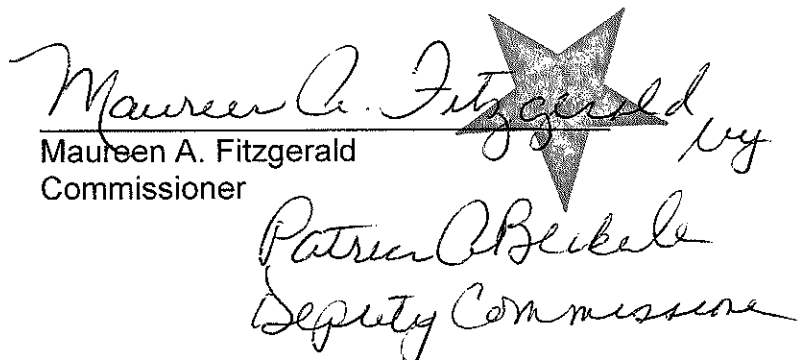 Maureen A. Fitzgerald by
Maureen A. Fitzgerald
Commissioner
Deputy Commissioner